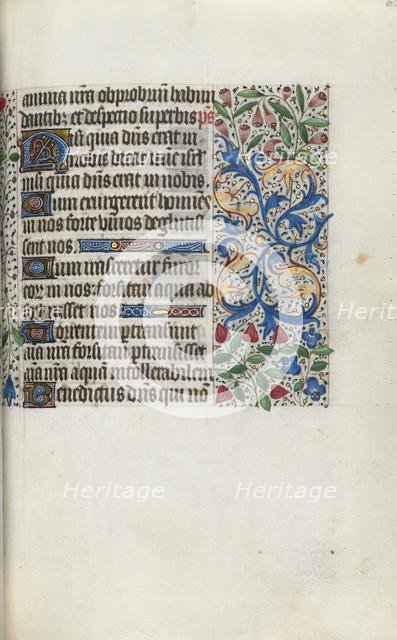 anima nr̄a obprobriū habun
dantibꝫ et despectio superbis ps
Nisi quia dn̄s erat in
nobis dicat nunc isrl̄
nisi quia dn̄s erat in nobis.
Cum exurgerent homines
in nos forte vivos deglutis
sent nos.
Cum irasceretur furor
eorū in nos: forsitan aqua ab
sorbuisset nos
Torrentem ptransivit
aīa nr̄a forsitan ptransisset
aīa nr̄a aquā intollerabilem
Benedictus dn̄s qui nō
Heritage Heritage Heritage
Heritage Heritage Heritage